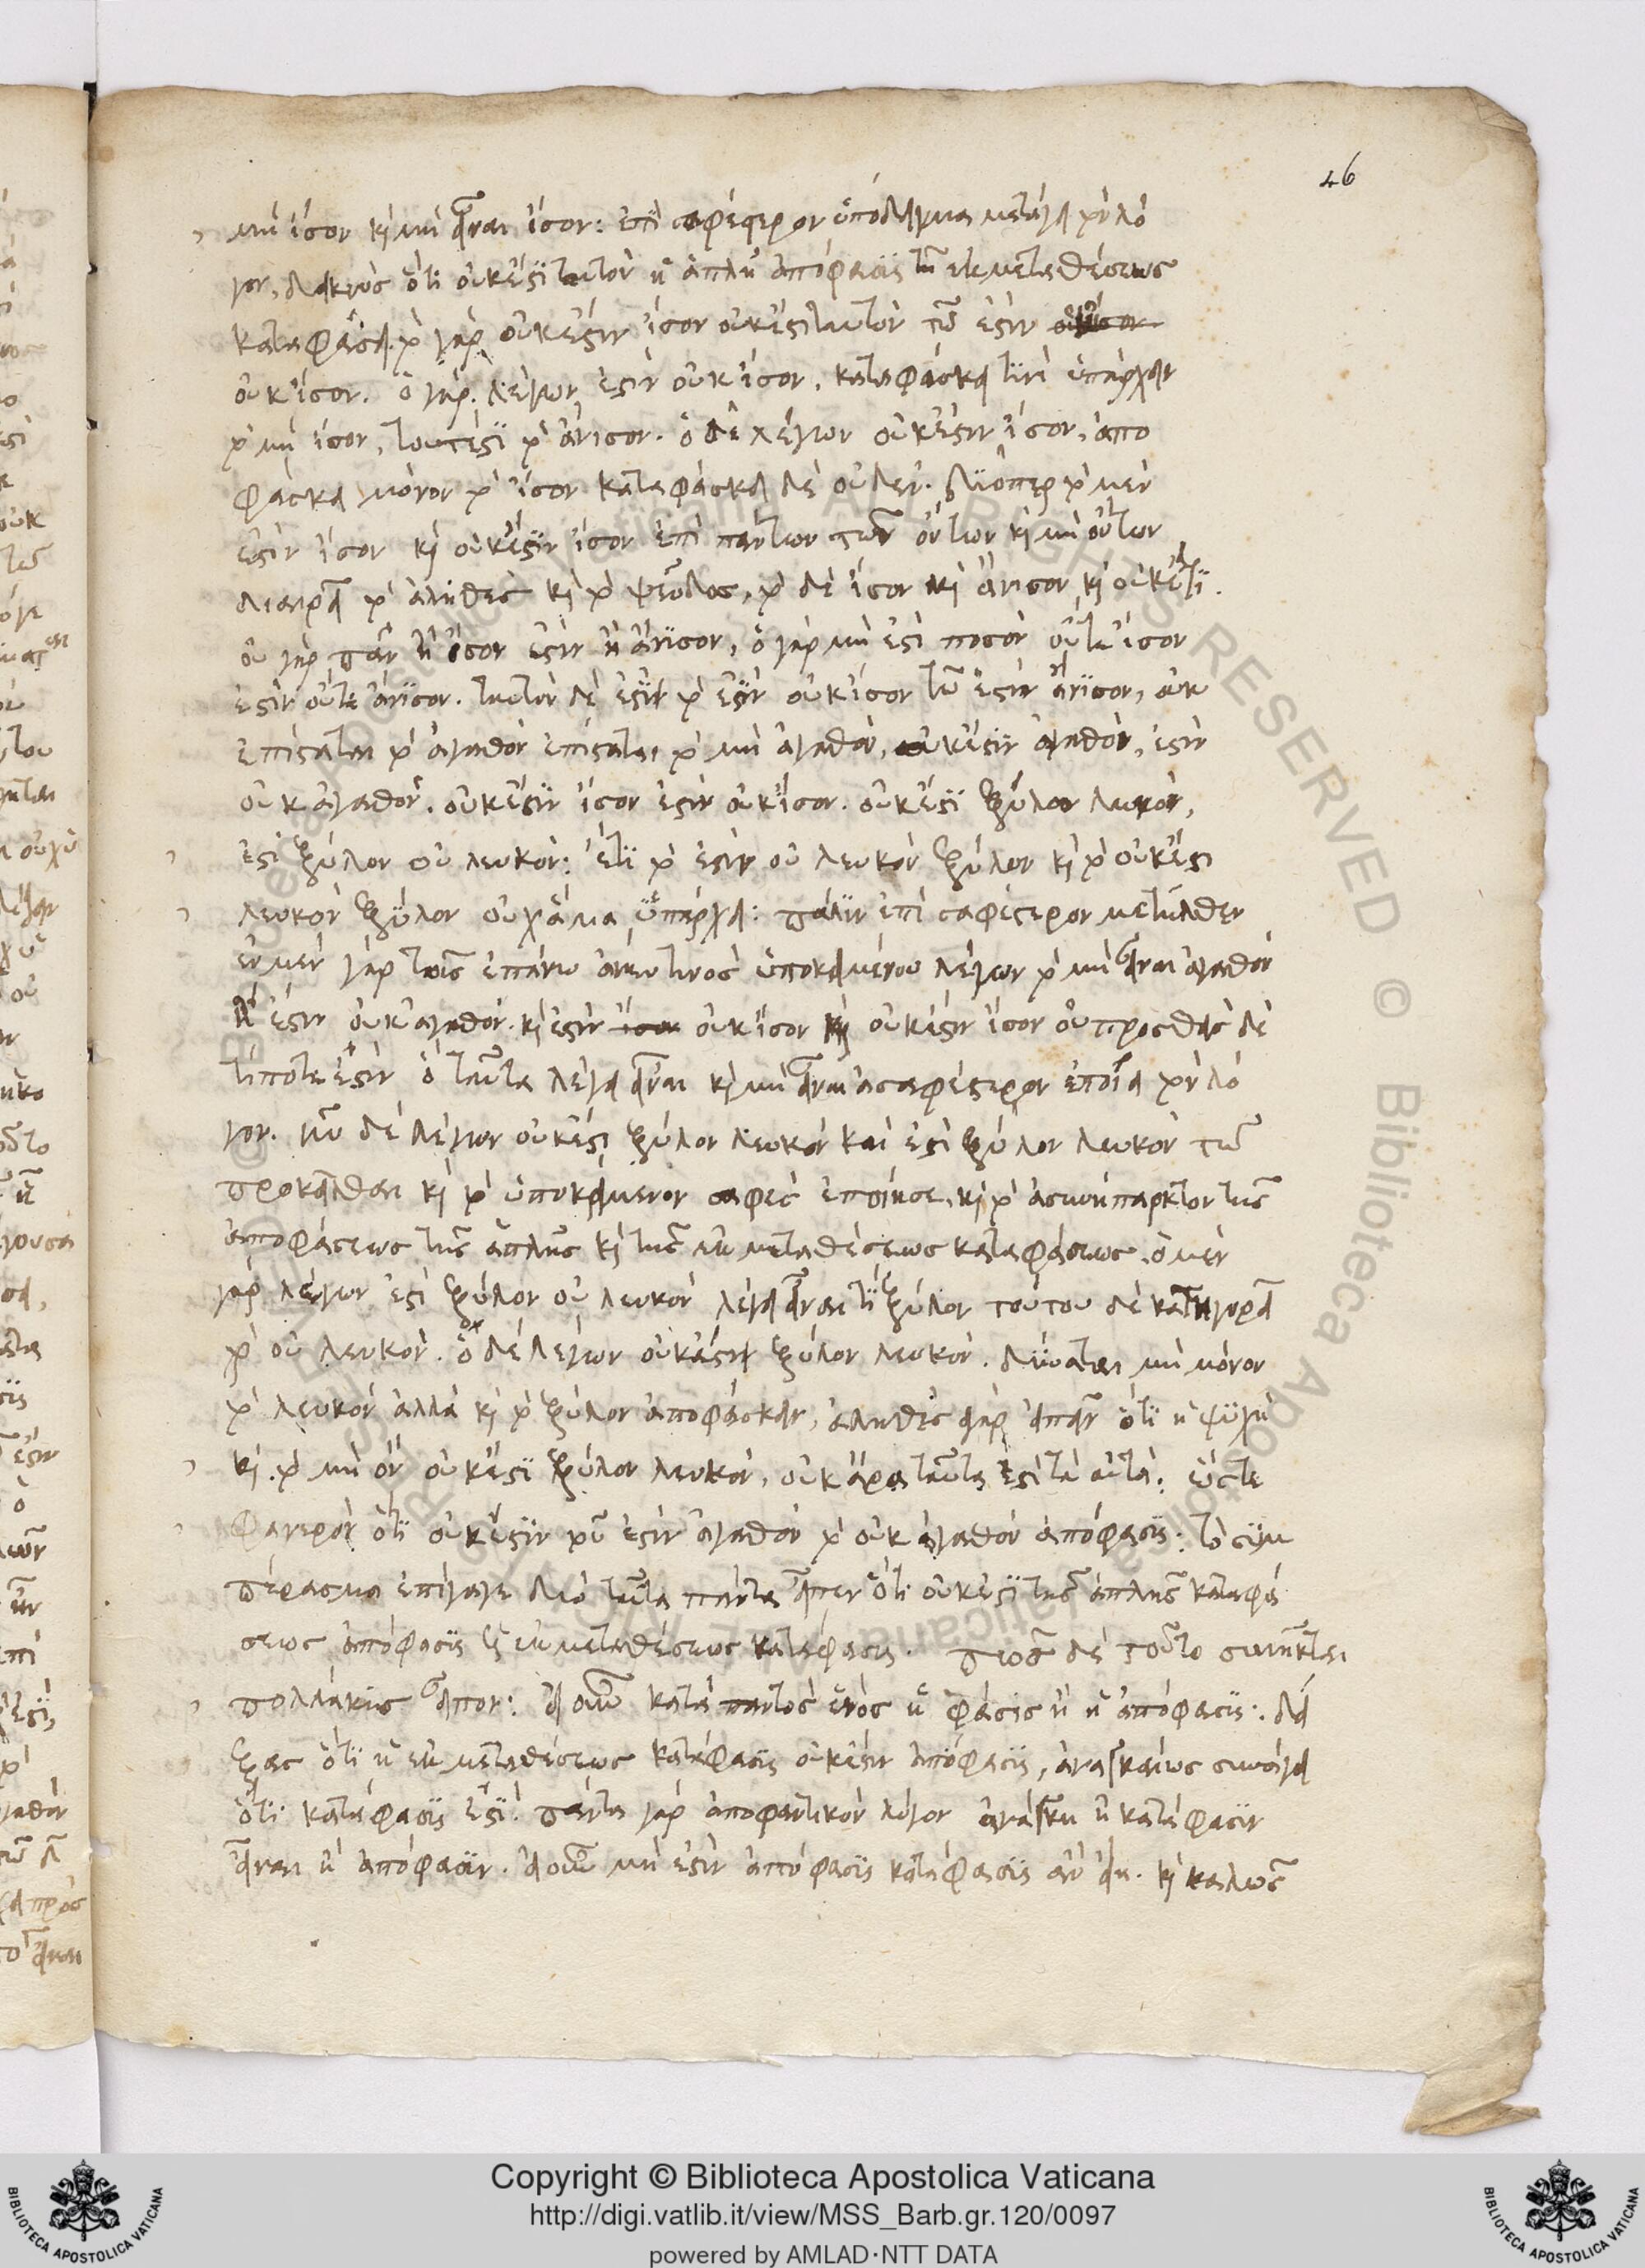 46
μὴ ἴσον κ(αὶ) μὴ εἶναι ἴσον: ἐπὶ σαφέστερον ὑπόδειγμα μετάγει τὸν λό
γον, δεικνὺς ὅτι οὐκ ἔστι ταυτὸν ἡ ἁπλῆ ἀπόφασις τῆ ἐκ μεταθέσεως
καταφάσει. τὸ γὰρ οὐκ ἔστιν ἴσον οὐκ ἔστι ταυτὸν τῶ ἐστιν
οὐκ ἴσον. ὁ γὰρ λέγων ἐστὶν οὐκ ἴσον, καταφάσκει τινὶ ὑπάρχειν
τὸ μὴ ἴσον, τουτέστι τὸ ἄνισον. ὁ δὲ λέγων οὐκ ἔστιν ἴσον, ἀπο
φάσκει μόνον τὸ ἴσον καταφάσκει δὲ οὐδέν. διόπερ τὸ μὲν
ἐστὶν ἴσον κ(αὶ) οὐκ ἔστιν ἴσον ἐπὶ πάντων τῶν ὄντων κ(αὶ) μὴ ὄντων
διαιρεῖ τὸ ἀληθὲς κ(αὶ) τὸ ψεῦδος, τὸ δὲ ἴσον κ(αὶ) ἄνισον κ(αὶ) οὐκέτι.
οὐ γὰρ πᾶν ἢ ἴσον ἐστὶν ἢ ἄνισον, ὃ γὰρ μὴ ἐστὶ ποσὸν οὔτε ἴσον
ἐστὶν οὔτε ἄνισον. ταυτὸν δέ ἐστιν τὸ ἐστὶν οὐκ ἴσον τῶ ἐστὶν ἄνισον, οὐκ
ἐπίσταται τὸ ἀγαθὸν ἐπίσταται τὸ μὴ ἀγαθόν, οὐκ ἔστιν ἀγαθόν, ἐστὶν
οὐκ ἀγαθόν. οὐκ ἔστιν ἴσον ἐστὶν οὐκ ἴσον. οὐκ ἔστι ξύλον λευκόν,
ἐστὶ ξύλον οὐ λευκόν: ἔτι τὸ ἐστὶν οὐ λευκὸν ξύλον κ(αὶ) τὸ οὐκ ἔστι
λευκὸν ξύλον οὐχ ἅμα ὑπάρχει: πάλιν ἐπὶ σαφέστερον μετῆλθεν
ἐν μὲν γὰρ τοῖς ἐπάνω ἄνευ τινὸς ὑποκειμένου λέγων τὸ μὴ εἶναι ἀγαθὸν
ἢ ἐστὶν οὐκ ἀγαθόν. κ(αὶ) ἐστὶν οὐκ ἴσον κ(αὶ) οὐκ ἔστιν ἴσον οὐ προσθεὶς δὲ
τί ποτε ἐστὶν ὃ ταῦτα λέγει εἶναι κ(αὶ) μὴ εἶναι ἀσαφέστερον ἐποίει τὸν λό
γον. νῦν δὲ λέγων οὐκ ἔστι ξύλον λευκὸν καὶ ἐστὶ ξύλον λευκὸν τῶ
προκεῖσθαι κ(αὶ) τὸ ὑποκείμενον σαφὲς ἐποίησε, κ(αὶ) τὸ ἀσυνύπαρκτον τῆς
ἀποφάσεως τῆς ἁπλῆς κ(αὶ) τῆς ἐκ μεταθέσεως καταφάσεως. ὁ μὲν
γὰρ λέγων ἐστὶ ξύλον οὐ λευκὸν λέγει εἶναι τὶ ξύλον τούτου δὲ κατηγορεῖ
τὸ οὐ λευκόν. ὁ δὲ λέγων οὐκ ἔστιν ξύλον λευκόν. δύναται μὴ μόνον
τὸ λευκὸν ἀλλὰ κ(αὶ) τὸ ξύλον ἀποφάσκειν, ἀληθὲς γὰρ εἰπεῖν ὅτι ἡ ψυχὴ
κ(αὶ) τὸ μὴ ὂν οὐκ ἔστι ξύλον λευκόν, οὐκ ἄρα ταῦτα ἐστὶ τὰ αὐτά: ὥστε
φανερὸν ὅτι οὐκ ἔστιν τοῦ ἐστὶν ἀγαθὸν τὸ οὐκ ἀγαθὸν ἀπόφασις: τὸ συμ
πέρασμα ἐπήγαγε διὸ ταῦτα πάντα εἶπεν ὅτι οὐκ ἔστι τῆς ἁπλῆς καταφά
σεως ἀπόφασις ἡ ἐκ μεταθέσεως κατάφασις. πῶς δὲ τοῦτο συνῆκται
πολλάκις εἶπον: εἰ οὖν κατὰ παντὸς ἑνὸς ἢ φάσις ἢ ἡ ἀπόφασις: δεί
ξας ὅτι ἡ ἐκ μεταθέσεως κατάφασις οὐκ ἔστιν ἀπόφασις, ἀναγκαίως συνάγει
ὅτι κατάφασις ἐστί. πάντα γὰρ ἀποφαντικὸν λόγον ἀνάγκη ἢ κατάφασιν
εἶναι ἢ ἀπόφασιν. εἰ οὖν μή ἐστιν ἀπόφασις κατάφασις ἂν εἴη. κ(αὶ) καλῶς
Copyright © Biblioteca Apostolica Vaticana
http://digi.vatlib.it/view/MSS_Barb.gr.120/0097
powered by AMLAD·NTT DATA